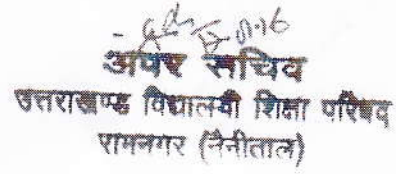 अपर सचिव
उत्तराखण्ड विद्यालयी शिक्षा परिषद
रामनगर (नैनीताल)